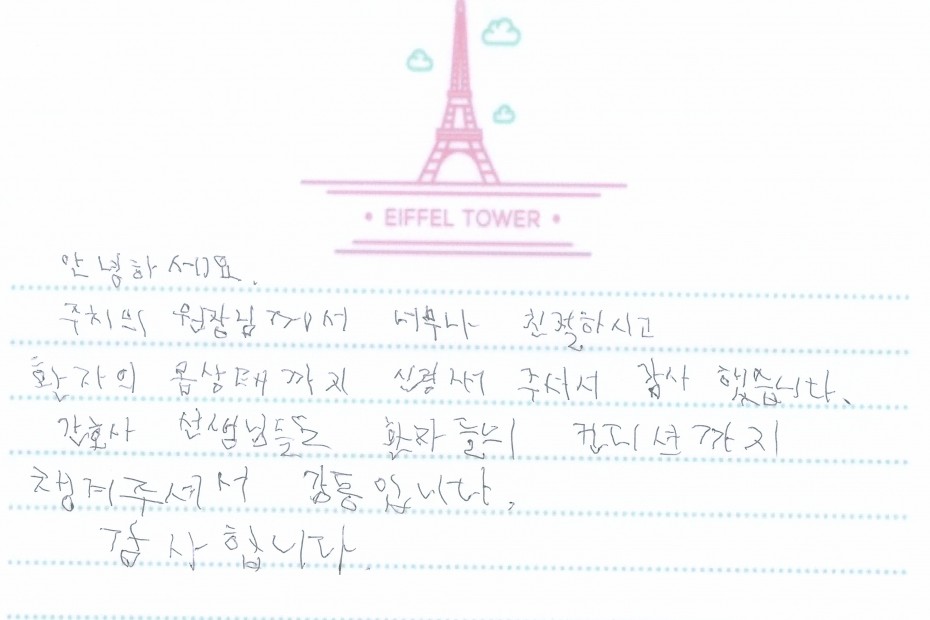 • EIFFEL TOWER •
안녕하세요.
주치의 원장님께서 너무나 친절하시고
환자의 몸상태까지 신경써 주셔서 감사했습니다.
간호사 선생님들도 환자들의 컨디션까지
챙겨주셔서 감동입니다.
감사합니다.